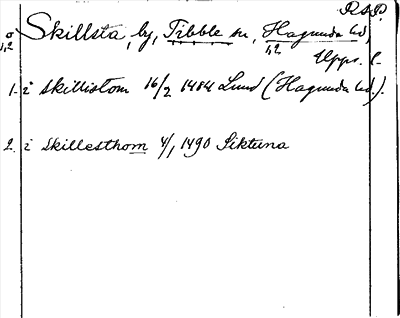 R.A.P.
o Skillsta, by, Tibble sn, Hagunda hd,
1,2 1,2
Upps. l.
1. i skillistom 16/2 1484 Lund (Hagunda hd.).
2. i skillesthom 4/1 1490 Siktuna